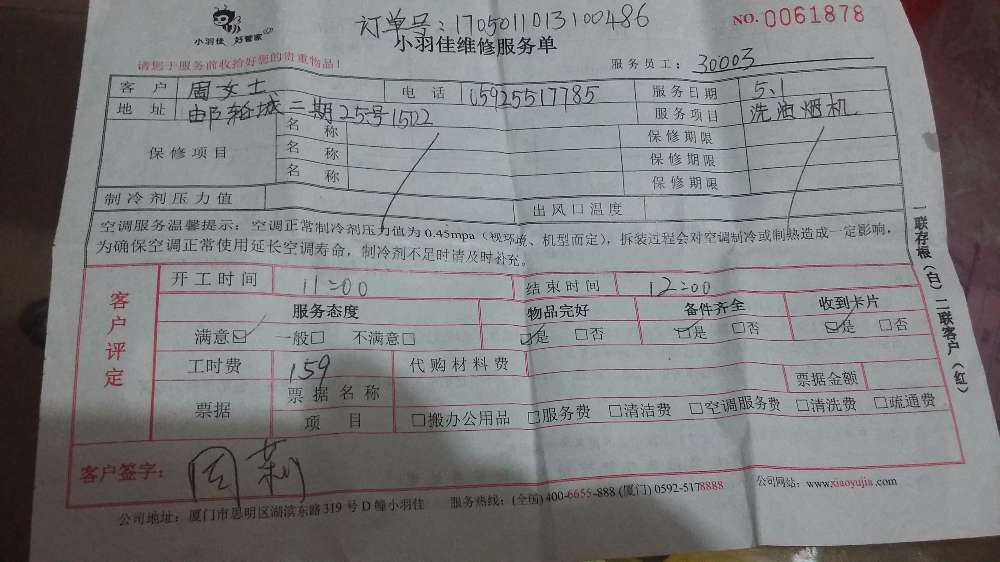 订单号:1705011013100486
NO.0061878
小羽佳 好管家
小羽佳维修服务单
请您于服务前收拾好您的贵重物品!
服务员工: 30003
客户 周女士 电话 15925517785 服务日期 5.1
地址 邮轮城二期25号1502 服务项目 洗油烟机
保修项目
名称 保修期限
名称 保修期限
名称 保修期限
制冷剂压力值 出风口温度
空调服务温馨提示:空调正常制冷剂压力值为0.45mpa(视环境、机型而定),拆装过程会对空调制冷或制热造成一定影响,
为确保空调正常使用延长空调寿命,制冷剂不足时请及时补充。
客户评定
开工时间 11:00 结束时间 12:00
服务态度 物品完好 备件齐全 收到卡片
满意☑ 一般□ 不满意□ ☑是 □否 ☑是 □否 ☑是 □否
工时费 159 代购材料费
票据 票据名称 票据金额
项目 □搬办公用品 □服务费 □清洁费 □空调服务费 □清洗费 □疏通费
客户签字: 周莉
公司地址:厦门市思明区湖滨东路319号D幢小羽佳 服务热线:(全国)400-6655-888 (厦门)0592-5178888 公司网站:www.xiaoyujia.com
一联存根(白)二联客户(红)